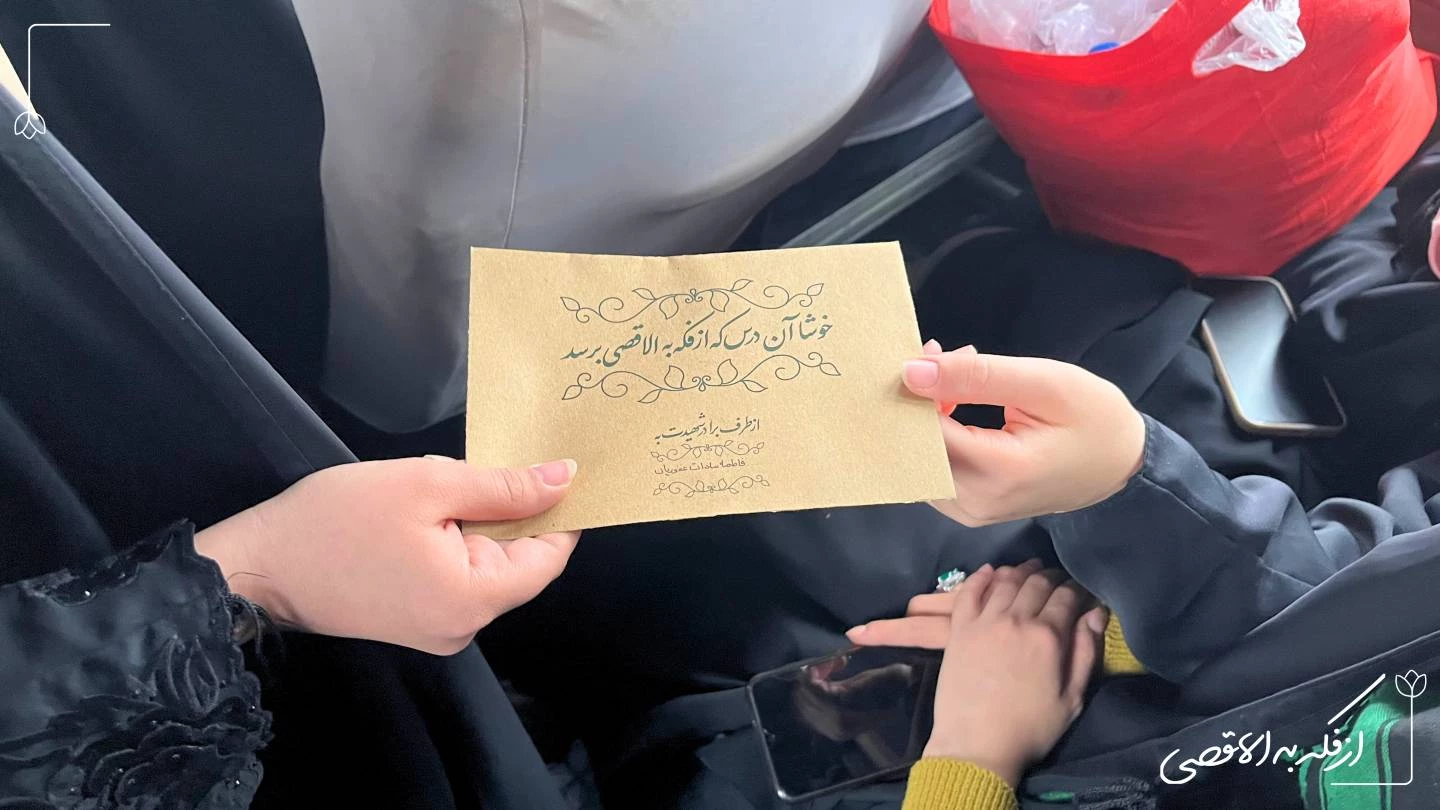 خوشا آن درس که از فکه به الاقصی برسد
از طرف برادر شهیدت به
فاطمه سادات
از فکه به الاقصی